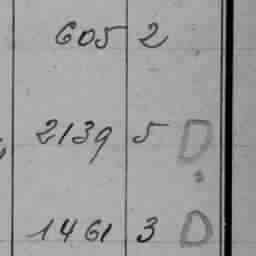 605 2
2139 5 D
1461 3 D